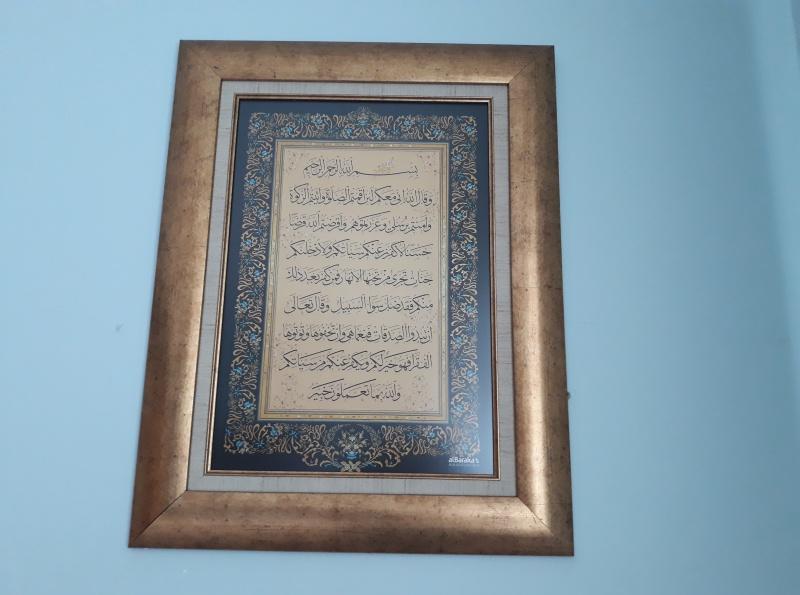 بسم الله الرحمن الرحيم
وقال الله اني معكم لئن اقمتم الصلوة واتيتم الزكوة
وامنتم برسلي وعزرتموهم واقرضتم الله قرضا
حسنا لاكفرن عنكم سياتكم ولادخلنكم
جنات تجري من تحتها الانهار فمن كفر بعد ذلك
منكم فقد ضل سواء السبيل وقال تعالى
ان تبدوا الصدقات فنعما هي وان تخفوها وتوتوها
الفقرا فهو خير لكم ويكفر عنكم من سياتكم
والله بما تعملون خبير
alBaraka